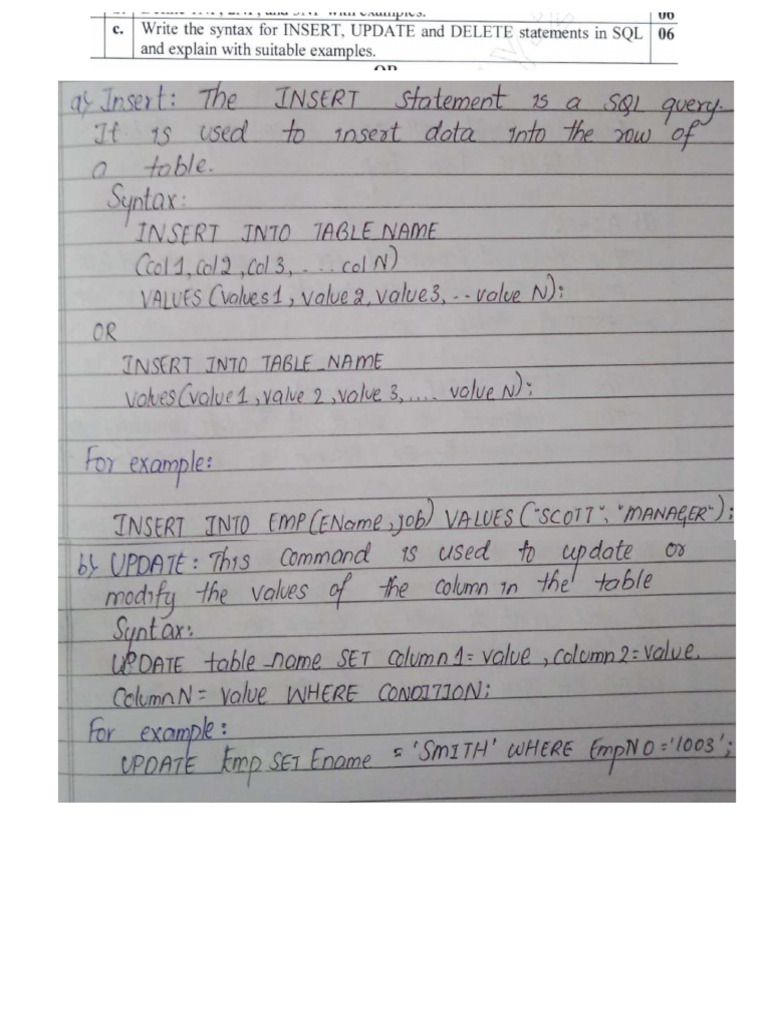 c. Write the syntax for INSERT, UPDATE and DELETE statements in SQL 06
and explain with suitable examples.
a) Insert: The INSERT Statement is a SQL query.
It is used to insert data into the row of
a table.
Syntax:
INSERT INTO TABLE_NAME
(col1, col2, col3, .... col N)
VALUES (values1, value 2, value3, .. value N);
OR
INSERT INTO TABLE_NAME
values(value1, value 2, value 3, .... value N);
For example:
INSERT INTO EMP(EName, job) VALUES ("SCOTT", "MANAGER");
b) UPDATE: This command is used to update or
modify the values of the column in the table
Syntax:
UPDATE table_name SET column1= value, column2=value.
Column N= value WHERE CONDITION;
For example:
UPDATE Emp SET Ename = 'SMITH' WHERE EmpNO='1003';